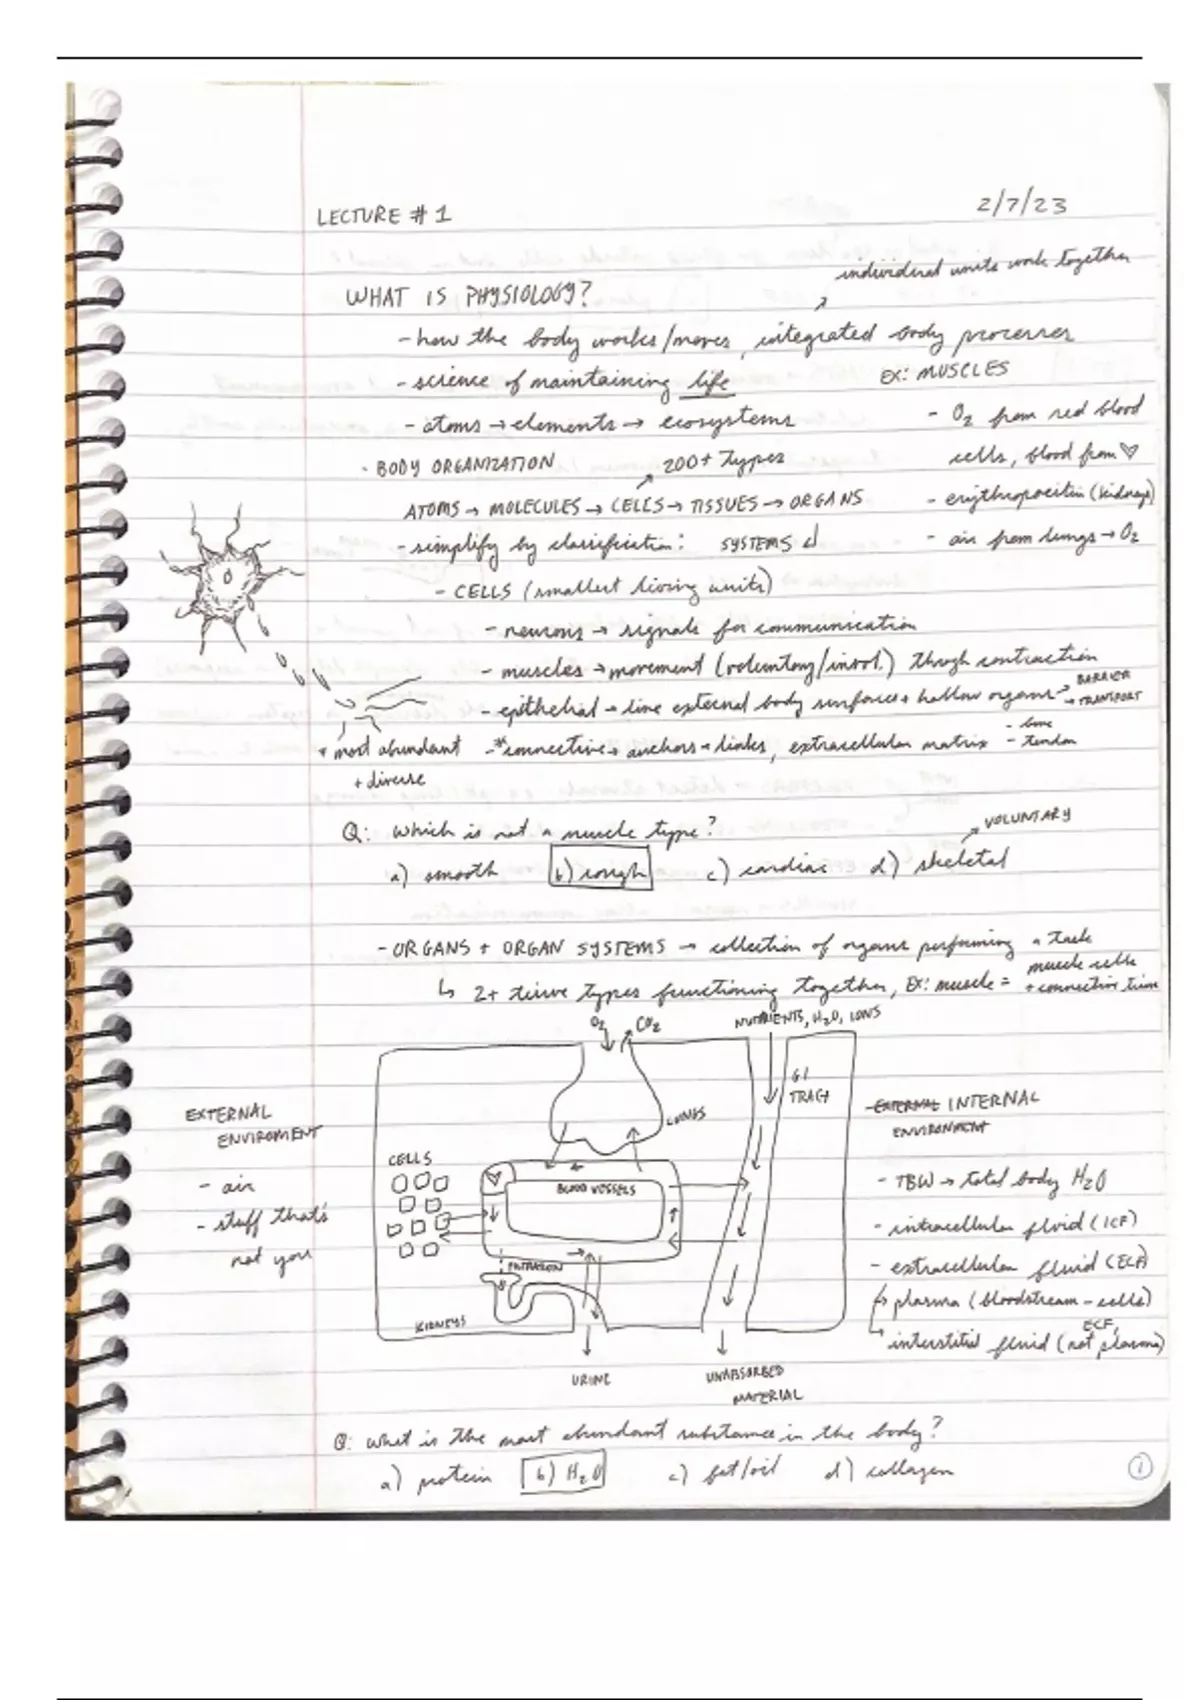 LECTURE # 1
2/7/23
individual units work together
WHAT IS PHYSIOLOGY?
- how the body works/moves, integrated body processes
- science of maintaining life
EX: MUSCLES
- atoms → elements → ecosystems
- O2 from red blood
cells, blood from ♡
- BODY ORGANIZATION
200+ types
ATOMS → MOLECULES → CELLS → TISSUES → ORGANS
- erythropoeitin (kidneys)
- simplify by classification:
SYSTEMS
- air from lungs → O2
- CELLS (smallest living units)
- neurons → signals for communication
- muscles → movement (voluntary/invol.) through contraction
- epithelial → line external body surfaces + hollow organs
→ BARRIER
→ TRANSPORT
* most abundant
+ diverse
- *connective → anchors + links, extracellular matrix
- bone
- tendon
Q: which is not a muscle type?
VOLUNTARY
a) smooth b) rough c) cardiac d) skeletal
- ORGANS + ORGAN SYSTEMS → collection of organs performing a task
↳ 2+ tissue types functioning together, EX: muscle = muscle cells
+ connective tissue
O2 CO2
NUTRIENTS, H2O, IONS
GI
TRACT
LUNGS
EXTERNAL
ENVIROMENT
- air
- stuff that's
not you
CELLS
BLOOD VESSELS
FILTRATION
KIDNEYS
URINE
UNABSORBED
MATERIAL
EXTERNAL INTERNAL
ENVIRONMENT
- TBW → total body H2O
- intracellular fluid (ICF)
- extracellular fluid (ECF)
↳ plasma (bloodstream - cells)
↳ interstitial fluid (not plasma)
ECF,
Q: what is the most abundant substance in the body?
a) protein b) H2O c) fat/oil d) collagen
1